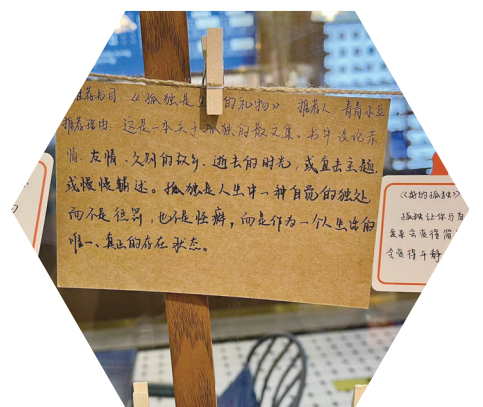 推荐书目：《孤独是生的礼物》 推荐人：青青小豆
推荐理由：这是一本关于孤独的散文集。书中谈论亲
情、友情、久别的故乡、逝去的时光，或直击主题，
或慢慢铺述。孤独是人生中一种自觉的独处
而不是惩罚，也不是怪癖，而是作为一个人生活的
唯一、真正的存在状态。
的孤独》
孤独让你与自
会变得平静